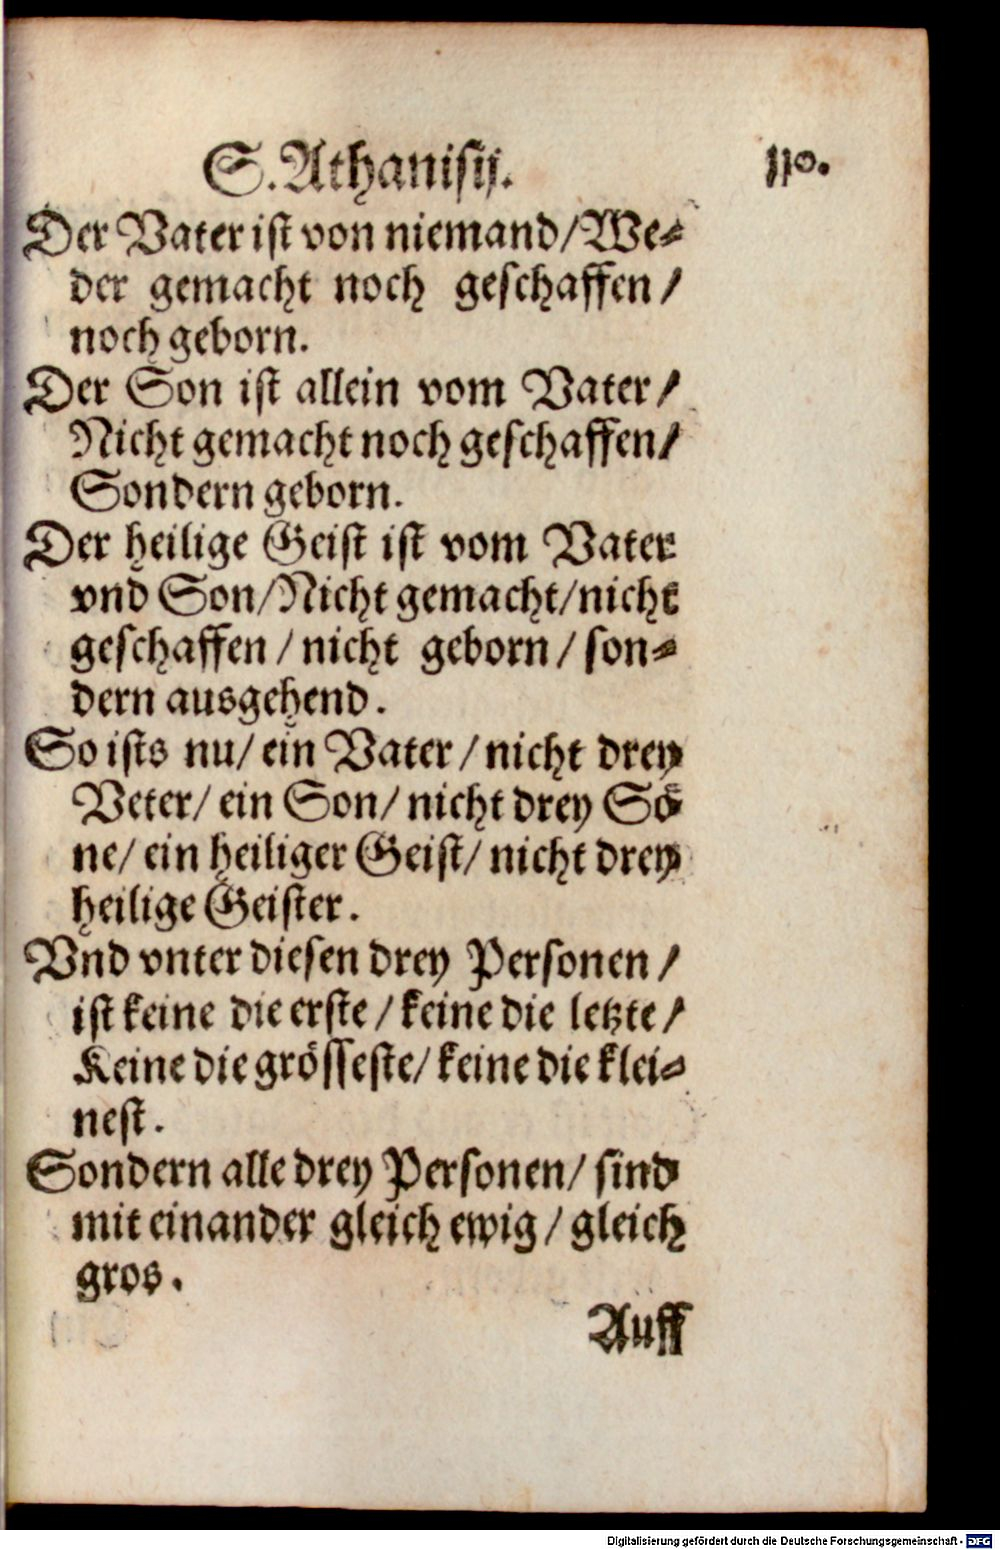 S. Athanisij. 110.
Der Vater ist von niemand/We-
der gemacht noch geschaffen/
noch geborn.
Der Son ist allein vom Vater/
Nicht gemacht noch geschaffen/
Sondern geborn.
Der heilige Geist ist vom Vater
vnd Son/Nicht gemacht/nicht
geschaffen/nicht geborn/son-
dern ausgehend.
So ists nu/ein Vater/nicht drey
Veter/ein Son/nicht drey Sö
ne/ein heiliger Geist/nicht drey
heilige Geister.
Vnd vnter diesen drey Personen/
ist keine die erste/keine die letzte/
Keine die grösseste/keine die klei-
nest.
Sondern alle drey Personen/sind
mit einander gleich ewig/gleich
gros.
Auff
Digitalisierung gefördert durch die Deutsche Forschungsgemeinschaft - DFG